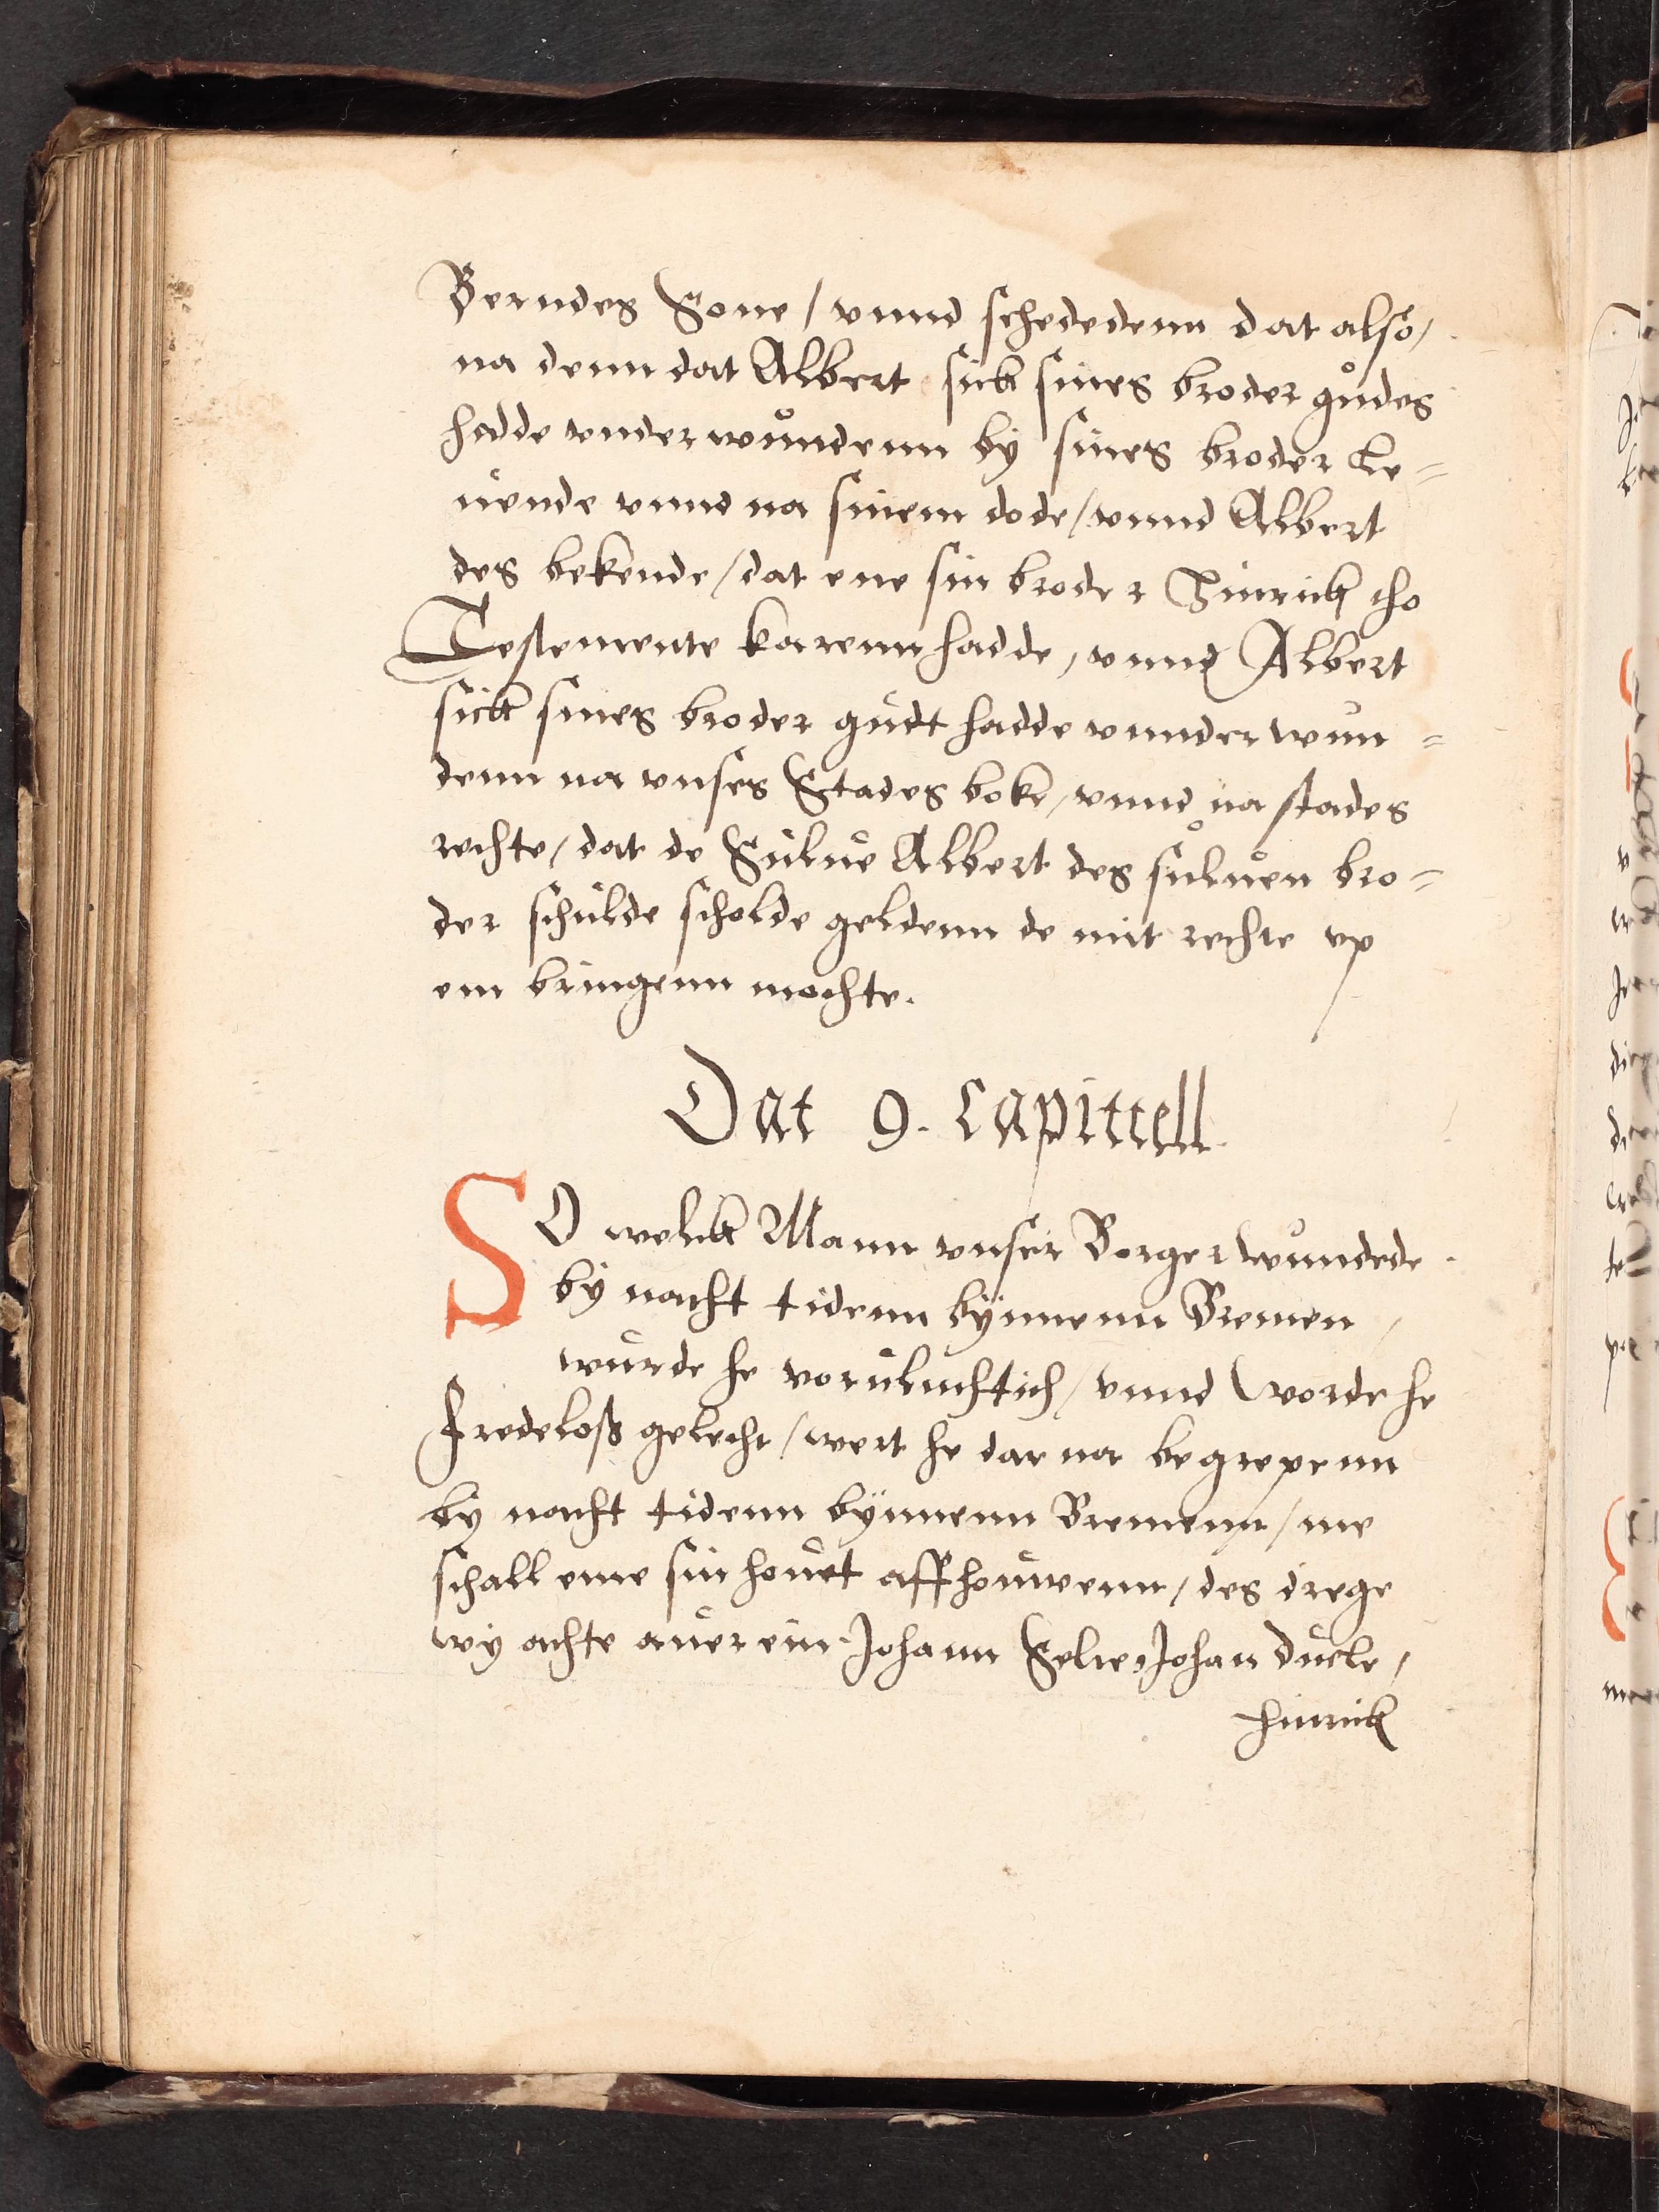 Berndes Sone / vnnd schededenn dat also /
na denn dat Albert sick sines broder gůdes
hadde vnderwůndenn by sines broder Le=
uende vnnd na sinem dode / vnnd Albert
des bekende / dat ene sin broder Hinrick tho
Testemente karenn hadde, vnnd Albert
sick sines broder gudt hadde vnnderwun=
denn na vnses Stades boke, vnnd na stades
rechte / dat de Sulue Albert des sůluen bro=
der schulde scholde geldenn de mit rechte vp
em bringenn mochte.
Dat 9. Capittell
SO welick Mann vnser Borger wundede
by nacht tidenn bÿnnenn Bremen /
wurde he voruluchtich / vnnd worde he
fredeloß gelecht / wert he dar na begrepenn
by nacht tidenn bÿnnenn Bremenn / me
schall eme sin houet affhouwenn / des drege
wÿ achte auerein Johann Selie, Johan Ducle /
Hinrick